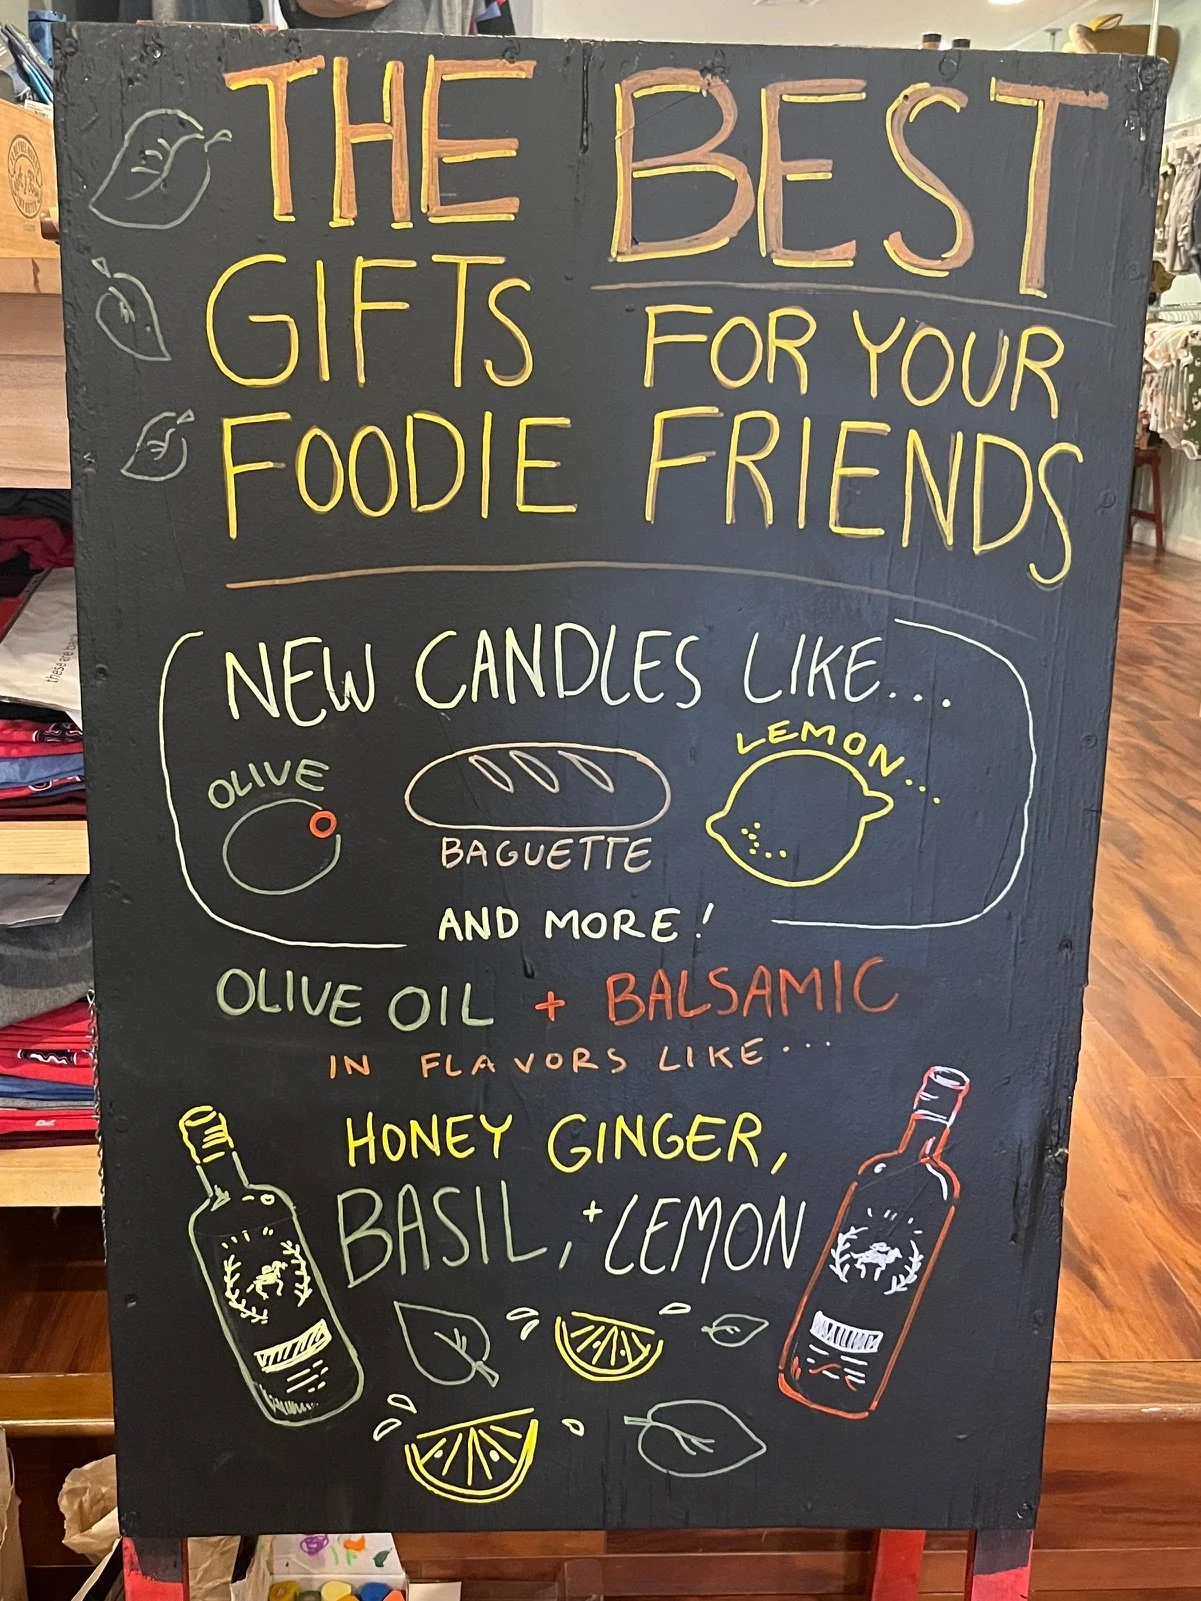 THE BEST
GIFTS FOR YOUR
FOODIE FRIENDS
NEW CANDLES LIKE...
OLIVE
BAGUETTE
LEMON...
AND MORE!
OLIVE OIL + BALSAMIC
IN FLAVORS LIKE...
HONEY GINGER,
BASIL, + LEMON
these are